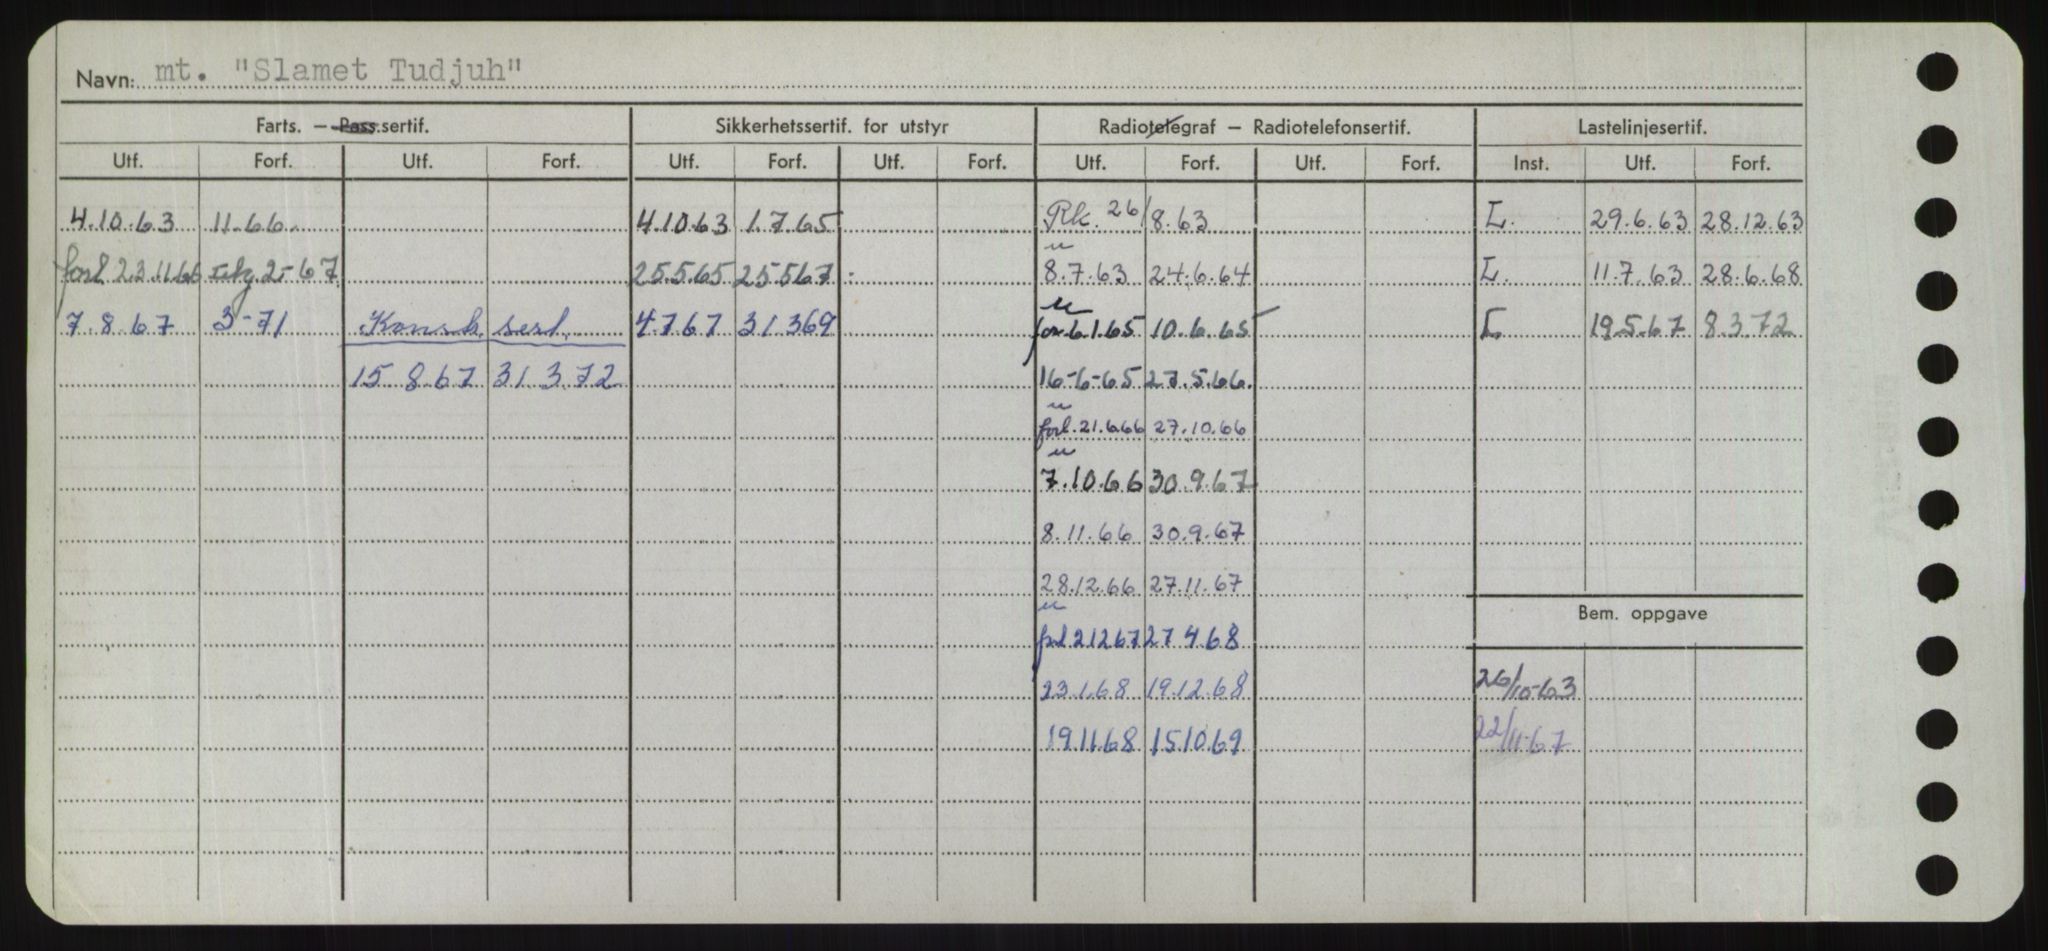 Navn: mt. "Slamet Tudjuh"
Farts. — Pass.sertif. Sikkerhetssertif. for utstyr Radiotelegraf — Radiotelefonsertif. Lastelinjesertif.
Utf. Forf. Utf. Forf. Utf. Forf. Utf. Forf. Utf. Forf. Utf. Forf. Inst. Utf. Forf.
4.10.63 11.66. 4.10.63 1.7.65 Rk. 26/8.63 L. 29.6.63 28.12.63
forl 23.11.66 2-67 25.5.65 25.5.67 8.7.63 24.6.64 L. 11.7.63 28.6.68
7.8.67 3-71 Konstr. sert. 4.7.67 31 3 69 for. 6.1.65 10.6.65 L 19.5.67 8.3.72
15 8.67 31 3.72 16-6-65 27.5.66.
forl. 21.6.66 27.10.66
7.10.66 30.9.67
8.11.66 30.9.67
28.12.66 27.11.67
Bem. oppgave
forl 21267 27 4 68
23.1.68 19.12.68 26/10-63
19.11.68 15.10.69 22/11-67